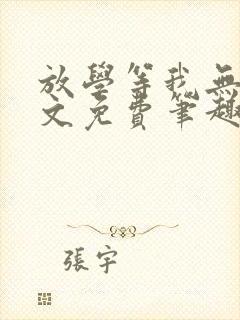 放學等我無
文免費筆趣
張宇